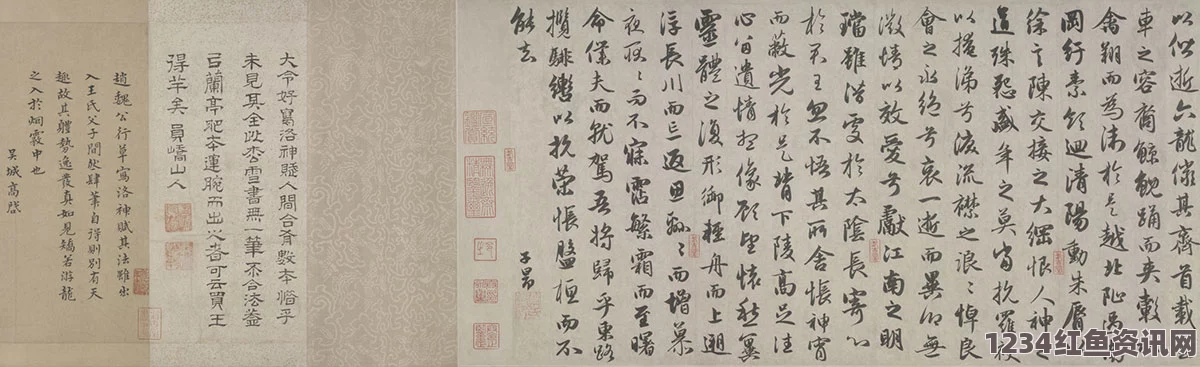 以偕逝六龍儼其齊首載
車之容裔鯨鯢踊而夾轂
禽翔而為衛於是越北沚過
岡紆素領迴清陽動朱脣
徐言陳交接之大綱恨人神之
道殊怨盛年之莫當抗羅袂
以掩涕兮淚流襟之浪〻悼良
會之永絕兮哀一逝而異鄉無
微情以效愛兮獻江南之明
璫雖潛處於太陰長寄心
於君王忽不悟其所舍悵神宵
而蔽光於是背下陵高足往
心留遺情想像顧望懷愁冀
靈體之復形御輕舟而上遡
浮長川而忘返思綿〻而增慕
夜耿〻而不寐霑繁霜而至曙
命僕夫而就駕吾將歸乎東路
攬騑轡以抗策悵盤桓而不
能去
子昂
大令好寫洛神賦人間合有數本惜乎
未見其全此松雪書無一筆不合法蓋
以蘭亭肥本運腕而出之者可云買王
得羊矣 員嶠山人
趙魏公行草寫洛神賦其法雖出
入王氏父子間然肆筆自得則別有天
趣故其體勢逸發真如見矯若游龍
之入於烟霧中也
吳城高啓
1234红鱼资讯网